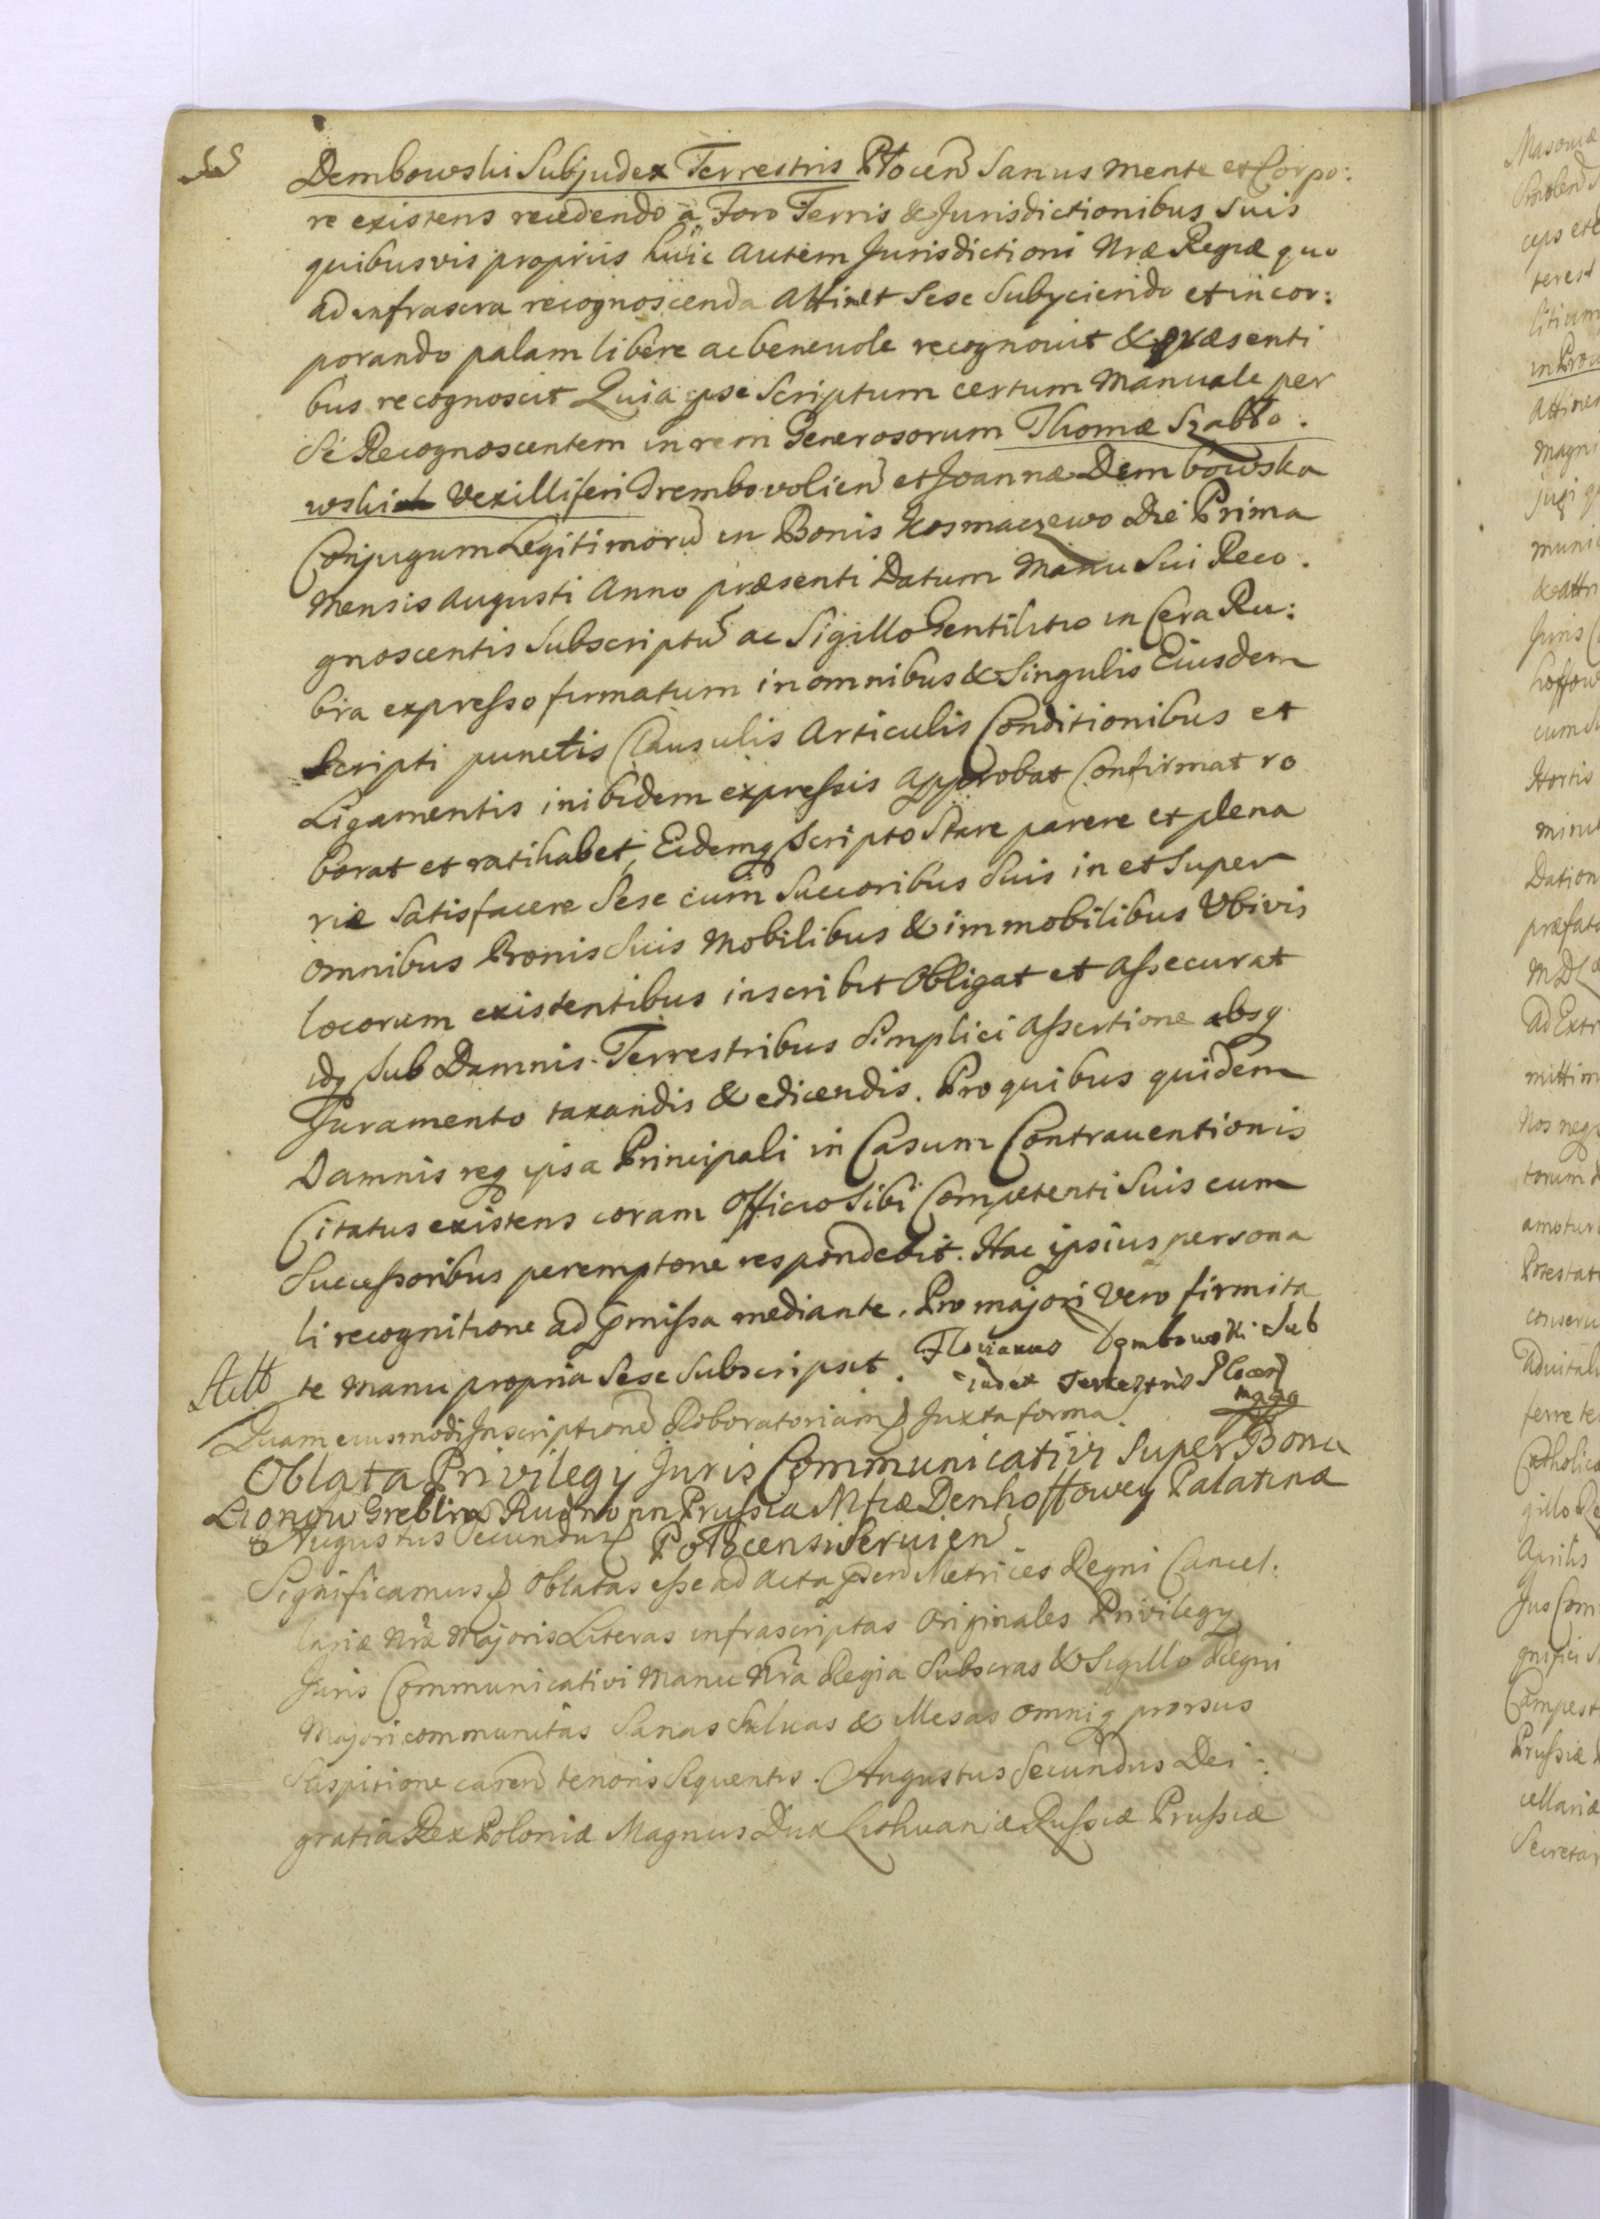 Dembowski Subjudex Terrestris Płocen Sanus mente et Corpo:
re existens recedendo a Foro Terris & Jurisdictionibus Suis
quibusvis proprüs huic autem Jurisdictioni Nræ Regiæ quo
ad infrascra recognoscenda attinet Sese Subyciendo et incor:
porando palam libere ac beneuole recognouit & præsenti
bus recognoscit Quia ipse Scriptum certum Manuale per
Se Recognoscentem in rem Generosorum Thomæ Szabło:
wski Vexilliferi Drembovolien et Joannæ Dembowska
Conjugum Legitimorũ in Bonis Kosmaczewo Die Prima
Mensis Augusti Anno præsenti Datum Manu Sui Reco.
gnoscentis Subscriptũ ac Sigillo Gentilitio in Cera Ru:
bra expresso firmatum in omnibus & Singulis Eiusdem
Scripti punctis Clausulis Articulis Conditionibus et
Ligamentis inibidem expressis approbat Confirmat ro
borat et ratihabet, Eidemq Scripto Stare parere et plena
riæ Satisfacere Sese cum Succoribus Suis in et Super
omnibus Bonis Suis Mobilibus & immobilibus Vbivis
locorum existentibus inscribit Obligat et assecurat
idq Sub Damnis Terrestribus Simplici assertione absq
Juramento taxandis & edicendis. Pro quibus quidem
Damnis req ipsa Principali in Casum Contrauentionis
Citatus existens coram Officio Sibi Competenti Suis cum
Successoribus peremptorie respondebit. Hac ipsius persona
li recognitione ad pmissa mediante. Pro majori Vero firmita
te manu propria Sese Subscripsit. Florianus Dembowski Sub
iudex Terrestris Płocen
mppa
Quam eiusmodi Inscriptione Roboratoriam Juxta forma.
Oblata Privilegy Juris Communicativi Super Bona
Lionow Greblin Rudno in Prussia Mtiæ Denhoffowey Palatinæ
Augustus Secundus Połocensi Seruien
Significamus Oblatas esse ad Acta pden Metrices Regni Cancel:
lariæ Nræ Majoris Literas infrascriptas Originales Privilegy
Juris Communicativi Manu Nra Regia Subscras & Sigillo Regni
Majori communitas Sanas Saluas & Illesas omniq prorsus
Suspicione caren tenoris Sequentis. Augustus Secundus Dei
gratia Rex Poloniæ Magnus Dux Lithuaniæ Russiæ Prussiæ